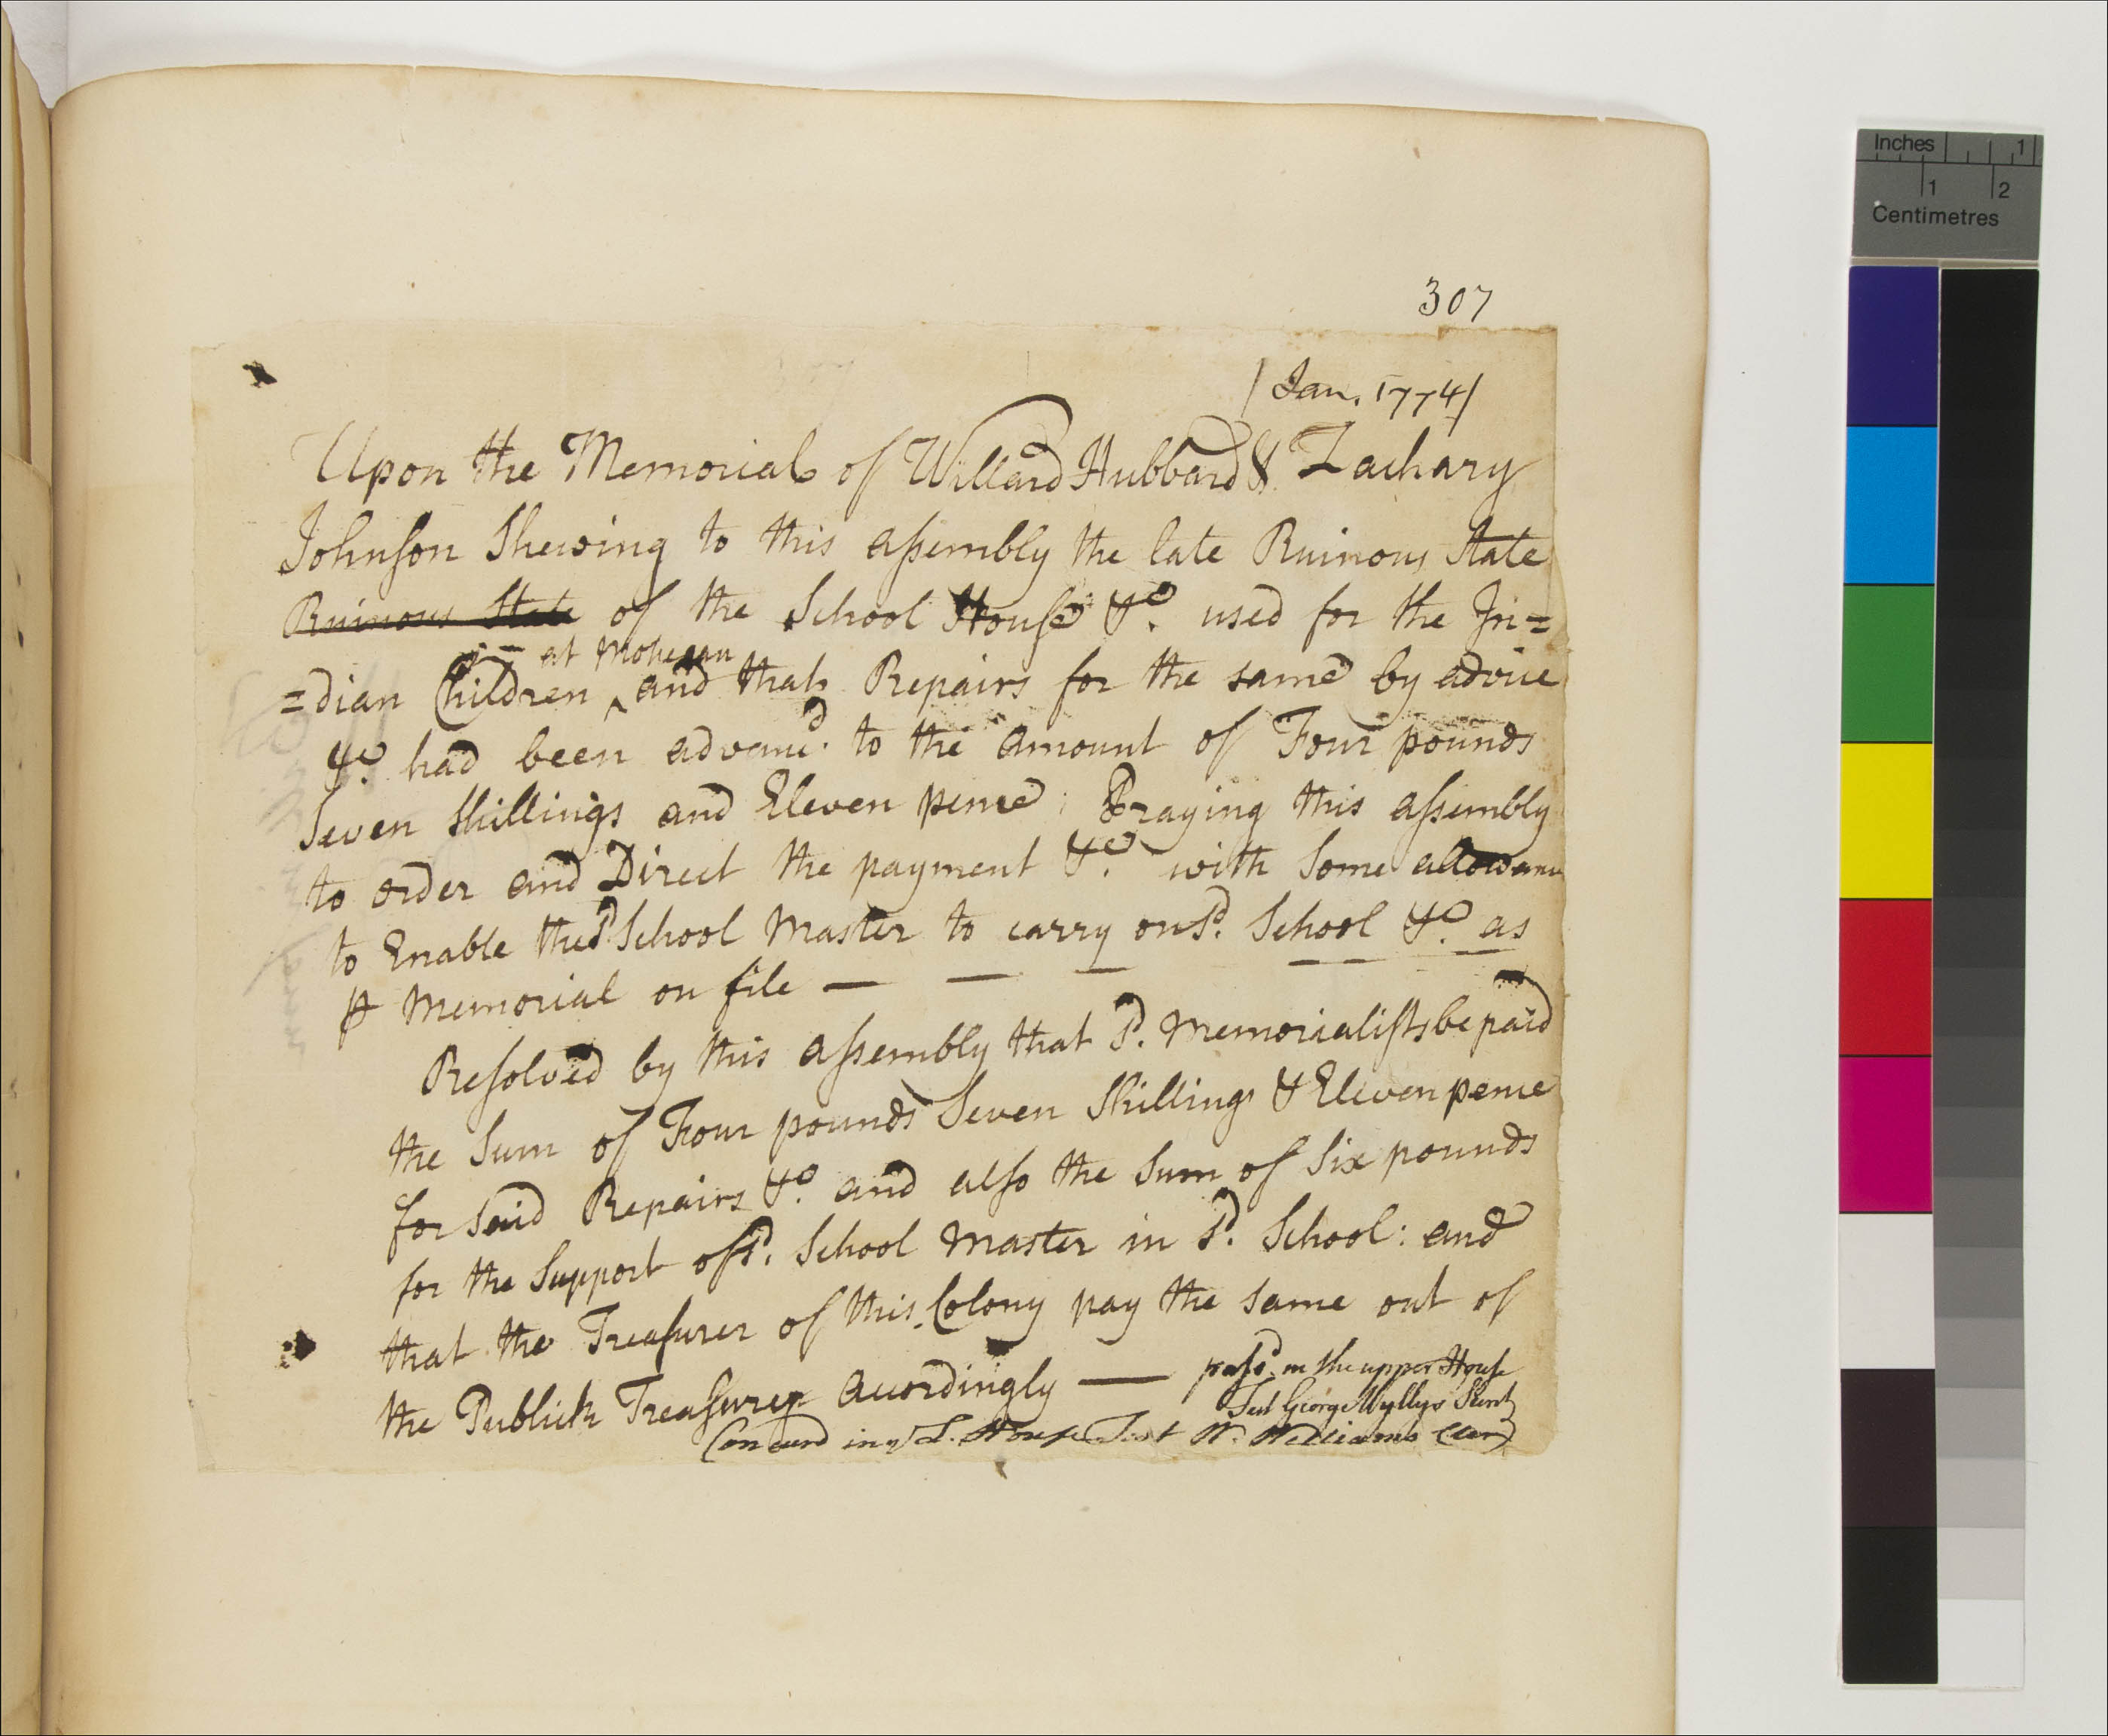 307
/Jan. 1774/
Upon the Memorial of Willard Hubbard & Zachary
Johnson Shewing to this assembly the late Ruinous State
Ruinous State of the School House &c. used for the In=
at Mohegan
=dian Children ^ and that Repairs for the same by advice
&c. had been advanc'd. to the amount of Four pounds
Seven Shillings and Eleven pence; Praying this assembly
to order and Direct the payment &c. with some allowance
to Enable the sd School Master to carry on sd. School &c. as
⅌ Memorial on file — — —
Resolved by this assembly that sd. Memorialists be paid
the Sum of Four pounds Seven Shillings & Eleven pence
for Said Repairs &c. and also the Sum of Six pounds
for the Support of sd. School Master in sd. School: and
that the Treasurer of this Colony pay the same out of
the Publick Treasurey accordingly — passd. in the upper House
Test George Wyllys Secrety
Concurd in ye L. House Test W. Williams Cler
Inches 1
1 2
Centimetres